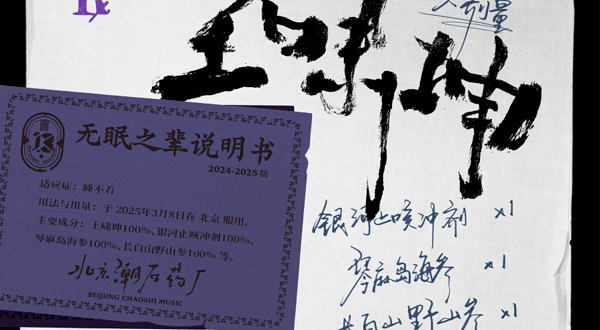 剂量
王啸坤
无眠之辈说明书
2024-2025版
适应症：睡不着
用法与用量：于 2025年3月8日在 北京 服用。
主要成分：王啸坤100%、银河止咳冲剂100%、
琴麻岛海参100%、长白山野山参100% 等。
北京潮石药厂
BEIJING CHAOSHI MUSIC
银河止咳冲剂 x1
琴麻岛海参 x1
长白山野山参 x1